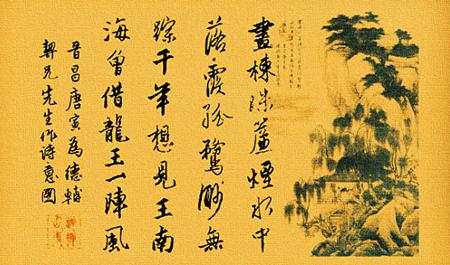 畫棟珠簾煙水中
落霞孤鶩渺無
踪千年想見王南
海曾借龍王一陣風
晉昌唐寅為德輔
契兄先生作詩意圖